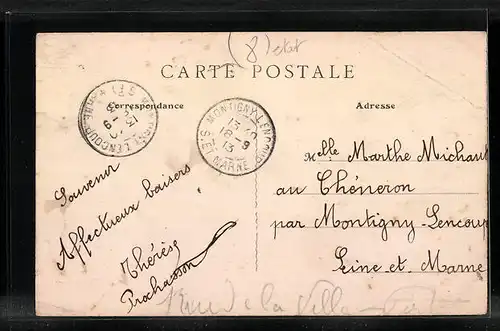 (8) état
CARTE POSTALE
Correspondance
Adresse
MONTIGNY-LENCOUP
13 40
18 -9
13
S.ET MARNE
Souvenir
Affectueux baisers
Thérèse
Prochasson
Melle Marthe Michaut
au Chêneron
par Montigny-Lencoup
Seine et Marne
de la